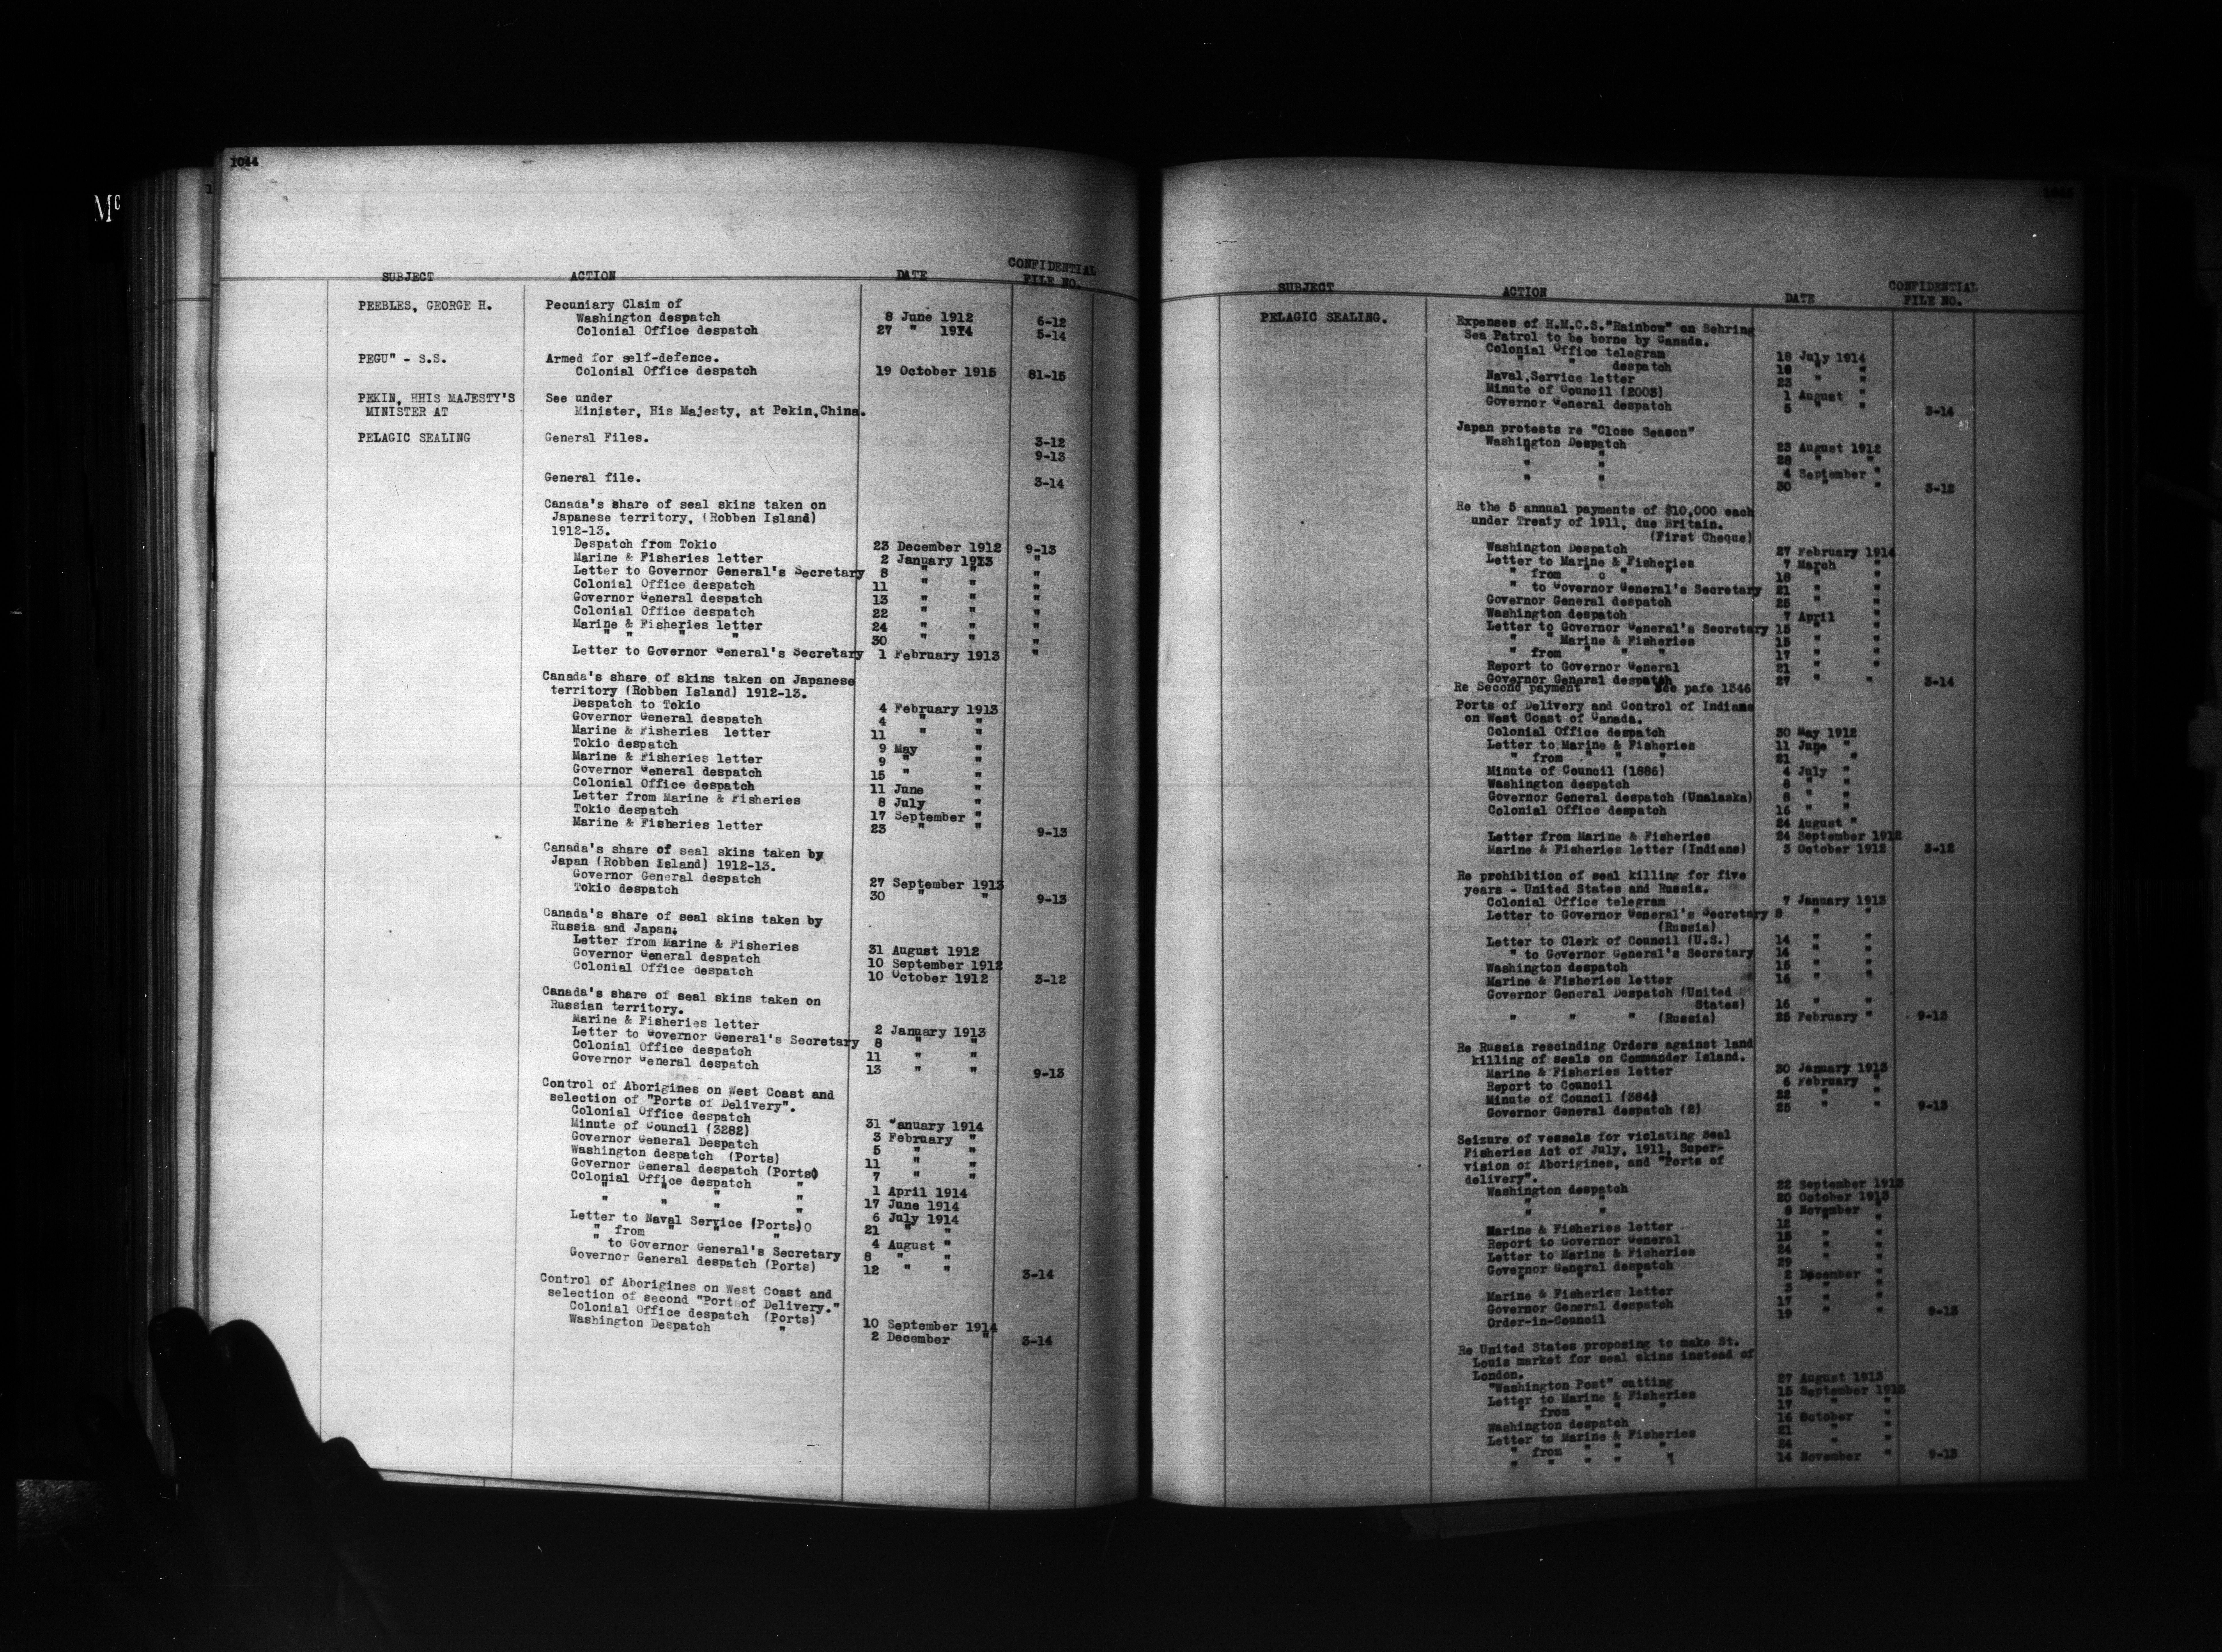 1044
Mc
SUBJECT ACTION DATE CONFIDENTIAL FILE NO.
PEEBLES, GEORGE H. Pecuniary Claim of
Washington despatch 8 June 1912 6-12
Colonial Office despatch 27 " 1914 5-14
PEGU" - S.S. Armed for self-defence.
Colonial Office despatch 19 October 1915 81-15
PEKIN, HHIS MAJESTY'S See under
MINISTER AT Minister, His Majesty, at Pekin,China.
PELAGIC SEALING General Files. 3-12
9-13
General file. 3-14
Canada's share of seal skins taken on
Japanese territory, (Robben Island)
1912-13.
Despatch from Tokio 23 December 1912 9-13
Marine & Fisheries letter 2 January 1913 "
Letter to Governor General's Secretary 8 " " "
Colonial Office despatch 11 " " "
Governor General despatch 13 " " "
Colonial Office despatch 22 " " "
Marine & Fisheries letter 24 " " "
" " " " 30 " " "
Letter to Governor General's Secretary 1 February 1913 "
Canada's share of skins taken on Japanese
territory (Robben Island) 1912-13.
Despatch to Tokio 4 February 1913
Governor General despatch 4 " "
Marine & Fisheries letter 11 " "
Tokio despatch 9 May "
Marine & Fisheries letter 9 " "
Governor General despatch 15 " "
Colonial Office despatch 11 June "
Letter from Marine & Fisheries 8 July "
Tokio despatch 17 September "
Marine & Fisheries letter 23 " " 9-13
Canada's share of seal skins taken by
Japan (Robben Island) 1912-13.
Governor General despatch 27 September 1913
Tokio despatch 30 " " 9-13
Canada's share of seal skins taken by
Russia and Japan.
Letter from Marine & Fisheries 31 August 1912
Governor General despatch 10 September 1912
Colonial Office despatch 10 October 1912 3-12
Canada's share of seal skins taken on
Russian territory.
Marine & Fisheries letter 2 January 1913
Letter to Governor General's Secretary 8 " "
Colonial Office despatch 11 " "
Governor General despatch 13 " " 9-13
Control of Aborigines on West Coast and
selection of "Ports of Delivery".
Colonial Office despatch 31 January 1914
Minute of Council (3282) 3 February "
Governor General Despatch 5 " "
Washington despatch (Ports) 11 " "
Governor General despatch (Ports) 7 " "
Colonial Office despatch " 1 April 1914
" " " " 17 June 1914
" " " " 6 July 1914
Letter to Naval Service (Ports)O 21 " "
" from " " " 4 August "
" to Governor General's Secretary 8 " "
Governor General despatch (Ports) 12 " " 3-14
Control of Aborigines on West Coast and
selection of second "Port of Delivery."
Colonial Office despatch (Ports) 10 September 1914
Washington Despatch " 2 December " 3-14
SUBJECT ACTION DATE CONFIDENTIAL FILE NO.
PELAGIC SEALING. Expenses of H.M.C.S."Rainbow" on Behring
Sea Patrol to be borne by Canada.
Colonial Office telegram 18 July 1914
" " despatch 18 " "
Naval Service letter 23 " "
Minute of Council (2003) 1 August "
Governor General despatch 5 " " 3-14
Japan protests re "Close Season"
Washington Despatch 23 August 1912
" " 28 " "
" " 4 September "
" " 30 " " 3-12
Re the 5 annual payments of $10,000 each
under Treaty of 1911, due Britain.
(First Cheque)
Washington Despatch 27 February 1914
Letter to Marine & Fisheries 7 March "
" from " " " 18 " "
" to Governor General's Secretary 21 " "
Governor General despatch 25 " "
Washington despatch 7 April "
Letter to Governor General's Secretary 15 " "
" " Marine & Fisheries 15 " "
" from " " " 17 " "
Report to Governor General 21 " "
Governor General despatch 27 " " 3-14
Re Second payment See pafe 1346
Ports of Delivery and Control of Indians
on West Coast of Canada.
Colonial Office despatch 30 May 1912
Letter to Marine & Fisheries 11 June "
" from " " " 21 " "
Minute of Council (1886) 4 July "
Washington despatch 8 " "
Governor General despatch (Unalaska) 8 " "
Colonial Office despatch 16 " "
24 August "
Letter from Marine & Fisheries 24 September 1912
Marine & Fisheries letter (Indians) 3 October 1912 3-12
Re prohibition of seal killing for five
years - United States and Russia.
Colonial Office telegram 7 January 1913
Letter to Governor General's Secretary 8 " "
(Russia)
Letter to Clerk of Council (U.S.) 14 " "
" to Governor General's Secretary 14 " "
Washington despatch 15 " "
Marine & Fisheries letter 16 " "
Governor General Despatch (United
States) 16 " "
" " " (Russia) 25 February " 9-13
Re Russia rescinding Orders against land
killing of seals on Commander Island.
Marine & Fisheries letter 30 January 1913
Report to Council 6 February "
Minute of Council (384) 22 " "
Governor General despatch (2) 25 " " 9-13
Seizure of vessels for violating Seal
Fisheries Act of July, 1911, Super-
vision of Aborigines, and "Ports of
delivery".
Washington despatch 22 September 1913
" " 20 October 1913
" " 8 November "
Marine & Fisheries letter 12 " "
Report to Governor General 15 " "
Letter to Marine & Fisheries 24 " "
Governor General despatch 29 " "
" " " 2 December "
Marine & Fisheries letter 3 " "
Governor General despatch 17 " "
Order-in-Council 19 " " 9-13
Re United States proposing to make St.
Louis market for seal skins instead of
London.
"Washington Post" cutting 27 August 1913
Letter to Marine & Fisheries 15 September 1913
" from " " " 17 " "
Washington despatch 16 October "
Letter to Marine & Fisheries 21 " "
" from " " " 24 " "
" " " " " 14 November " 9-13